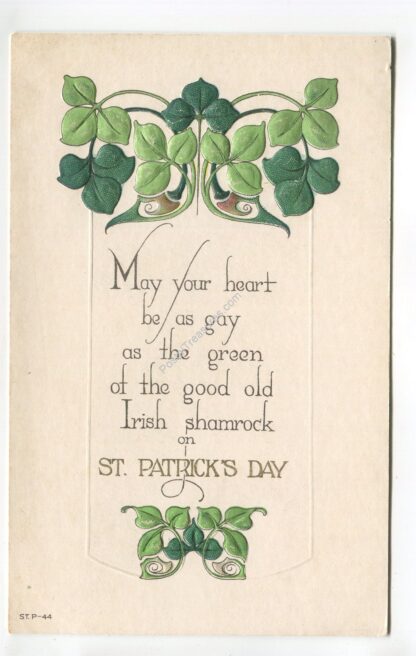 May your heart
be as gay
as the green
of the good old
Irish shamrock
on
ST. PATRICK'S DAY
ST. P-44